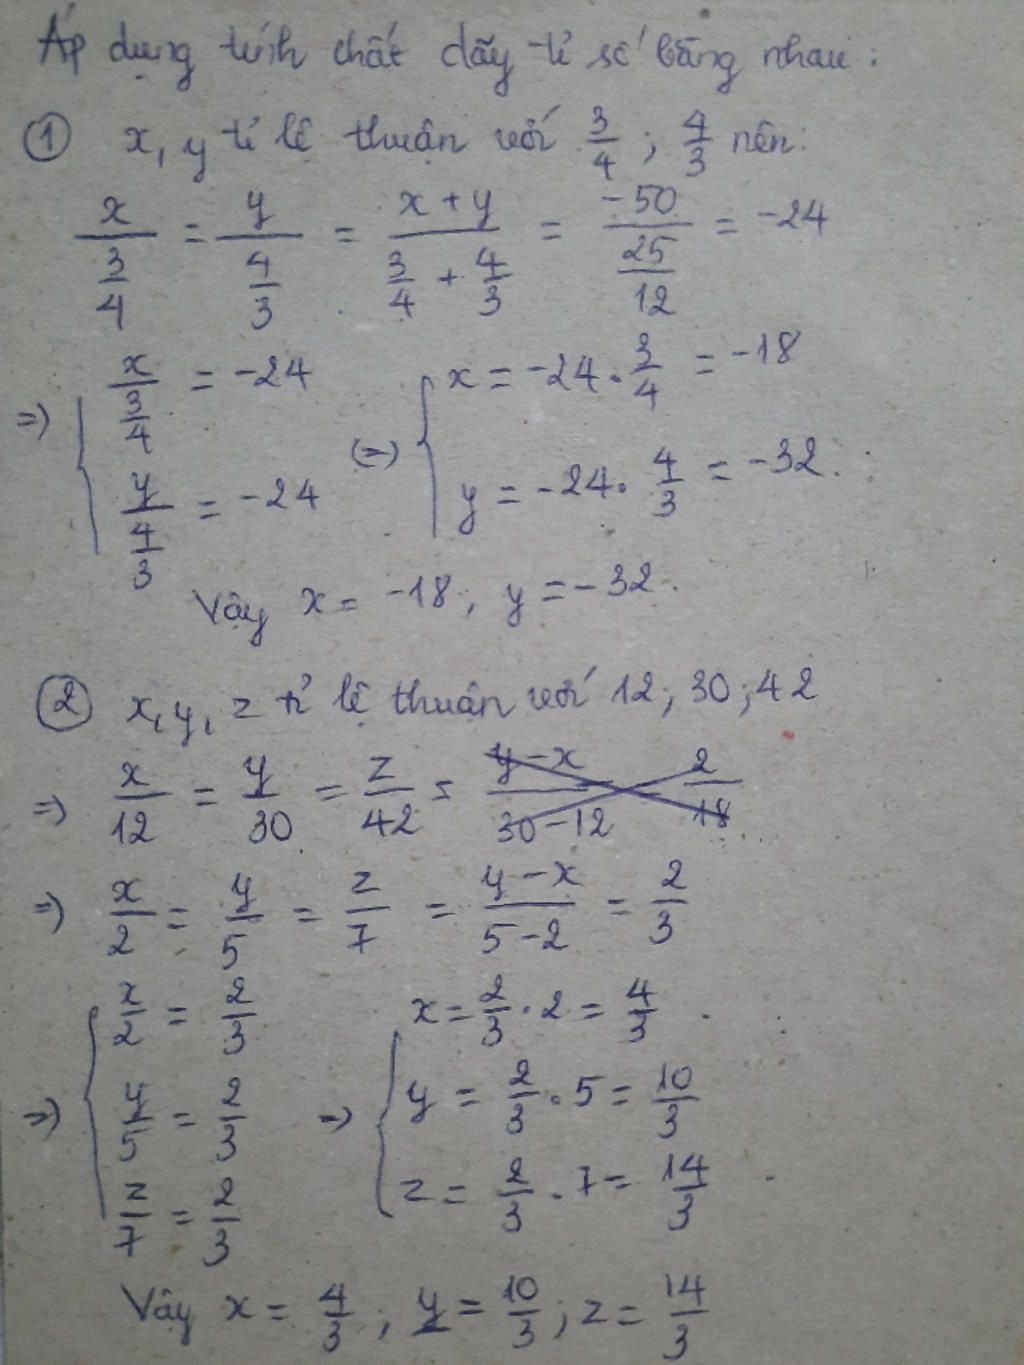 Áp dụng tính chất dãy tỉ số bằng nhau:
① x, y tỉ lệ thuận với 3/4 ; 4/3 nên:
x/(3/4) = y/(4/3) = (x+y)/(3/4 + 4/3) = -50/(25/12) = -24
=> { x/(3/4) = -24 (=>) { x = -24 . 3/4 = -18
y/(4/3) = -24 y = -24 . 4/3 = -32.
Vậy x = -18 ; y = -32.
② x, y, z tỉ lệ thuận với 12 ; 30 ; 42
=> x/12 = y/30 = z/42 = (y-x)/(30-12) = 2/18
=> x/2 = y/5 = z/7 = (y-x)/(5-2) = 2/3
=> { x/2 = 2/3 => { x = 2/3 . 2 = 4/3
y/5 = 2/3 y = 2/3 . 5 = 10/3
z/7 = 2/3 z = 2/3 . 7 = 14/3
Vậy x = 4/3 ; y = 10/3 ; z = 14/3